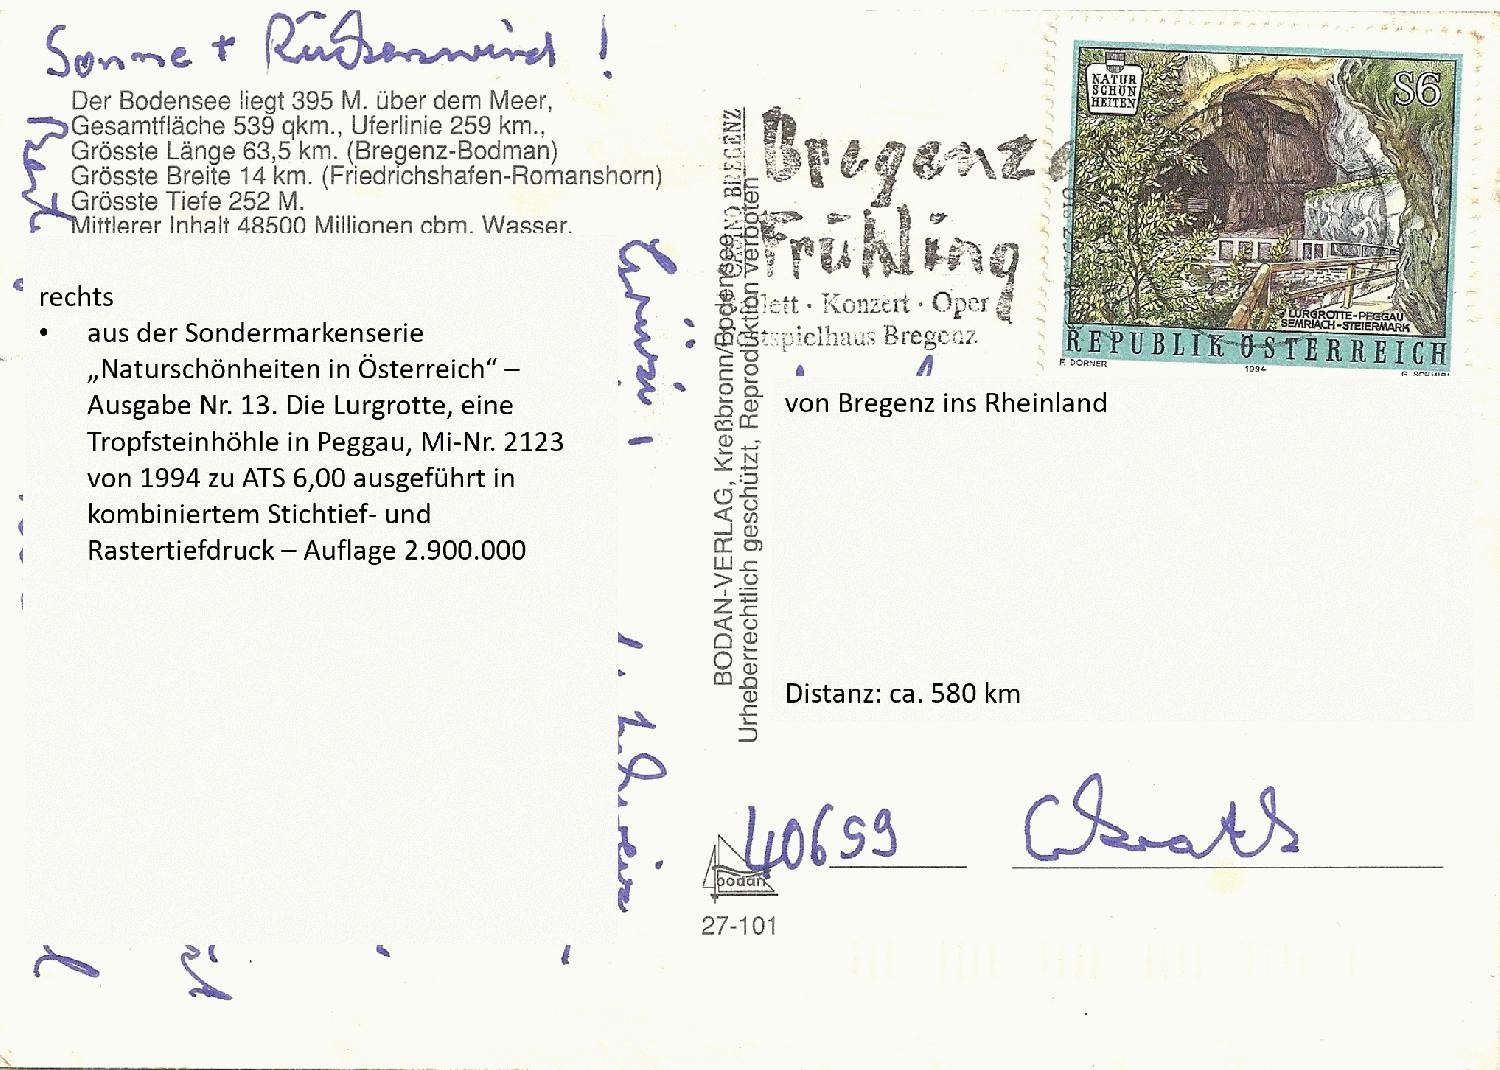 Sonne + Rückenwind !
Der Bodensee liegt 395 M. über dem Meer,
Gesamtfläche 539 qkm., Uferlinie 259 km.,
Grösste Länge 63,5 km. (Bregenz-Bodman)
Grösste Breite 14 km. (Friedrichshafen-Romanshorn)
Grösste Tiefe 252 M.
Mittlerer Inhalt 48500 Millionen cbm. Wasser.
rechts
• aus der Sondermarkenserie
„Naturschönheiten in Österreich“ –
Ausgabe Nr. 13. Die Lurgrotte, eine
Tropfsteinhöhle in Peggau, Mi-Nr. 2123
von 1994 zu ATS 6,00 ausgeführt in
kombiniertem Stichtief- und
Rastertiefdruck – Auflage 2.900.000
BODAN-VERLAG, Kreßbronn/Bodensee
BREGENZ
Urheberrechtlich geschützt, Reproduktion verboten
Bregenze
Frühling
Konzert · Oper
Bregenz
NATUR
SCHÖN
HEITEN
S6
LURGROTTE-PEGGAU
SEMRIACH-STEIERMARK
REPUBLIK ÖSTERREICH
F. DORNER
1994
von Bregenz ins Rheinland
Distanz: ca. 580 km
40699
bodan
27-101